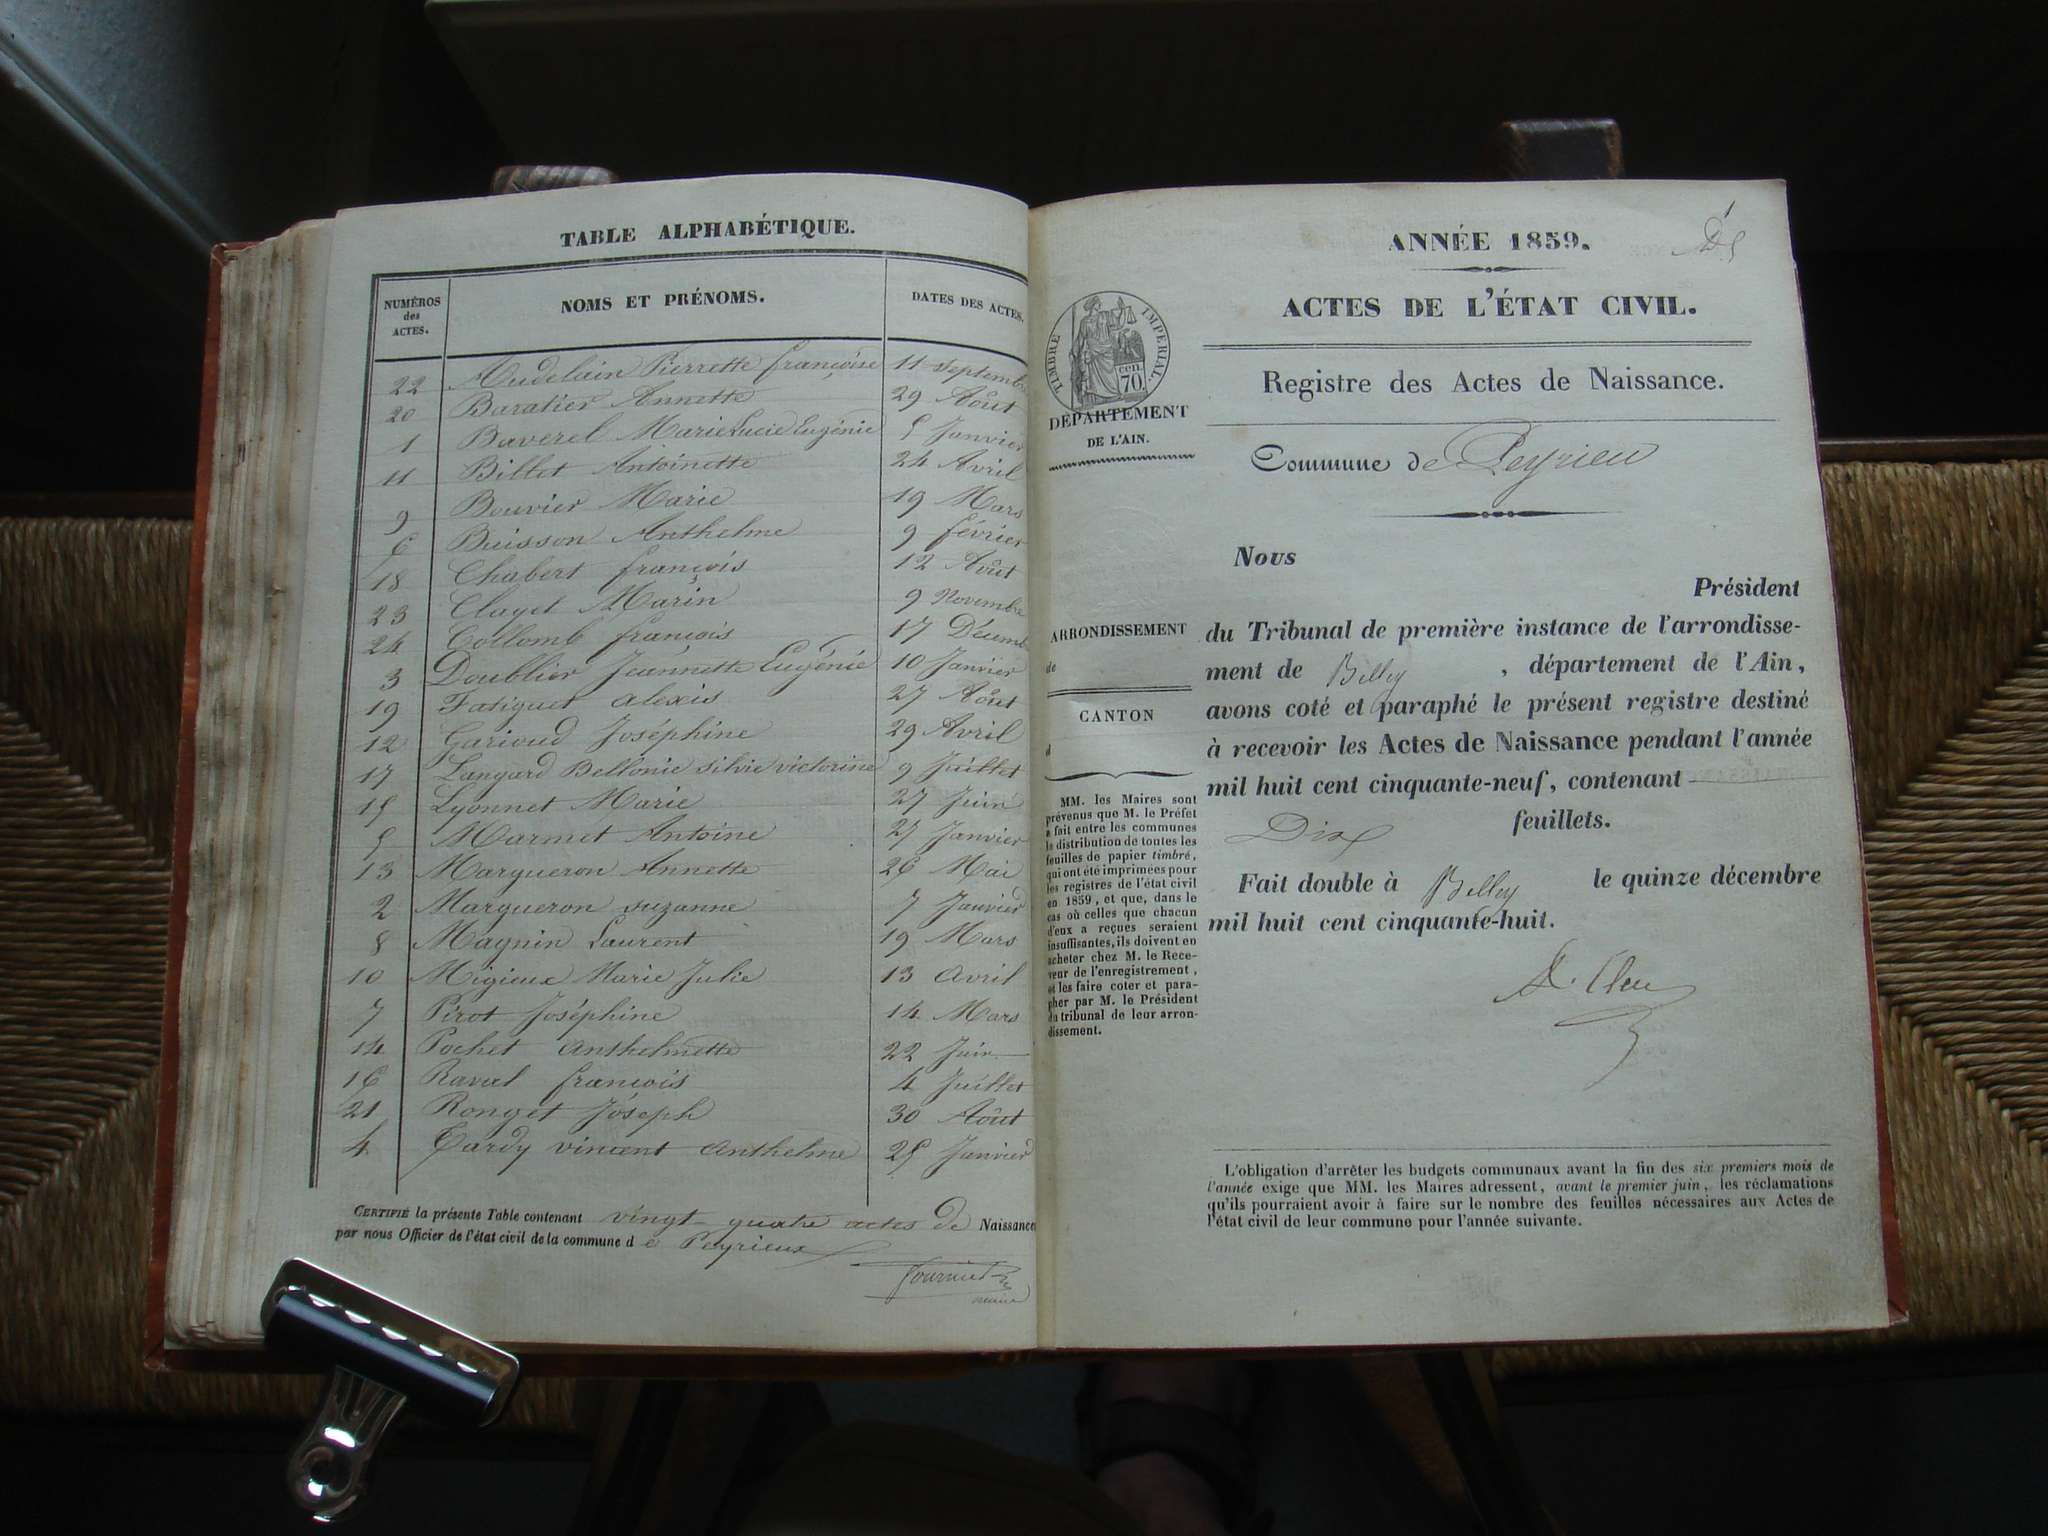 TABLE ALPHABÉTIQUE.
NUMÉROS des ACTES. NOMS ET PRÉNOMS. DATES DES ACTES.
22 Audelain Pierrette françoise 11 Septembre
20 Baratier Annette 29 Août
1 Baverel Marie Lucie Eugénie 5 Janvier
11 Billet Antoinette 24 Avril
9 Bouvier Marie 19 Mars
6 Buisson Anthelme 9 février
18 Chabert françois 12 Août
23 Clayet Marin 9 Novembre
24 Collomb françois 17 Décemb
3 Doublier Jeannette Eugénie 10 Janvier
19 Fatiguet alexis 27 Août
12 Garioud Joséphine 29 Avril
17 Langard Bellonie silvie victorine 9 Juillet
15 Lyonnet Marie 27 Juin
5 Marmet Antoine 27 Janvier
13 Margueron Annette 26 Mai
2 Margueron suzanne 7 Janvier
8 Magnin Laurent 19 Mars
10 Migieux Marie Julie 13 avril
7 Pirot Joséphine 14 Mars
14 Pochet anthelmette 22 Juin
16 Raval françois 4 Juillet
21 Ronget Joseph 30 Août
4 Tardy vincent anthelme 25 Janvier
CERTIFIÉ la présente Table contenant vingt-quatre actes de Naissance
par nous Officier de l'état civil de la commune de Peyrieux
maire
ANNÉE 1859.
ACTES DE L'ÉTAT CIVIL.
Registre des Actes de Naissance.
Commune de Peyrieu
TIMBRE IMPÉRIAL.
cen.
70.
DÉPARTEMENT
DE L'AIN.
ARRONDISSEMENT
de
CANTON
d
MM. les Maires sont
prévenus que M. le Préfet
a fait entre les communes
la distribution de toutes les
feuilles de papier timbré,
qui ont été imprimées pour
les registres de l'état civil
en 1859, et que, dans le
cas où celles que chacun
d'eux a reçues seraient
insuffisantes, ils doivent en
acheter chez M. le Rece-
veur de l'enregistrement,
et les faire coter et para-
pher par M. le Président
du tribunal de leur arron-
dissement.
Nous
Président
du Tribunal de première instance de l'arrondisse-
ment de Belley, département de l'Ain,
avons coté et paraphé le présent registre destiné
à recevoir les Actes de Naissance pendant l'année
mil huit cent cinquante-neuf, contenant
Dix feuillets.
Fait double à Belley le quinze décembre
mil huit cent cinquante-huit.
L'obligation d'arrêter les budgets communaux avant la fin des six premiers mois de
l'année exige que MM. les Maires adressent, avant le premier juin, les réclamations
qu'ils pourraient avoir à faire sur le nombre des feuilles nécessaires aux Actes de
l'état civil de leur commune pour l'année suivante.